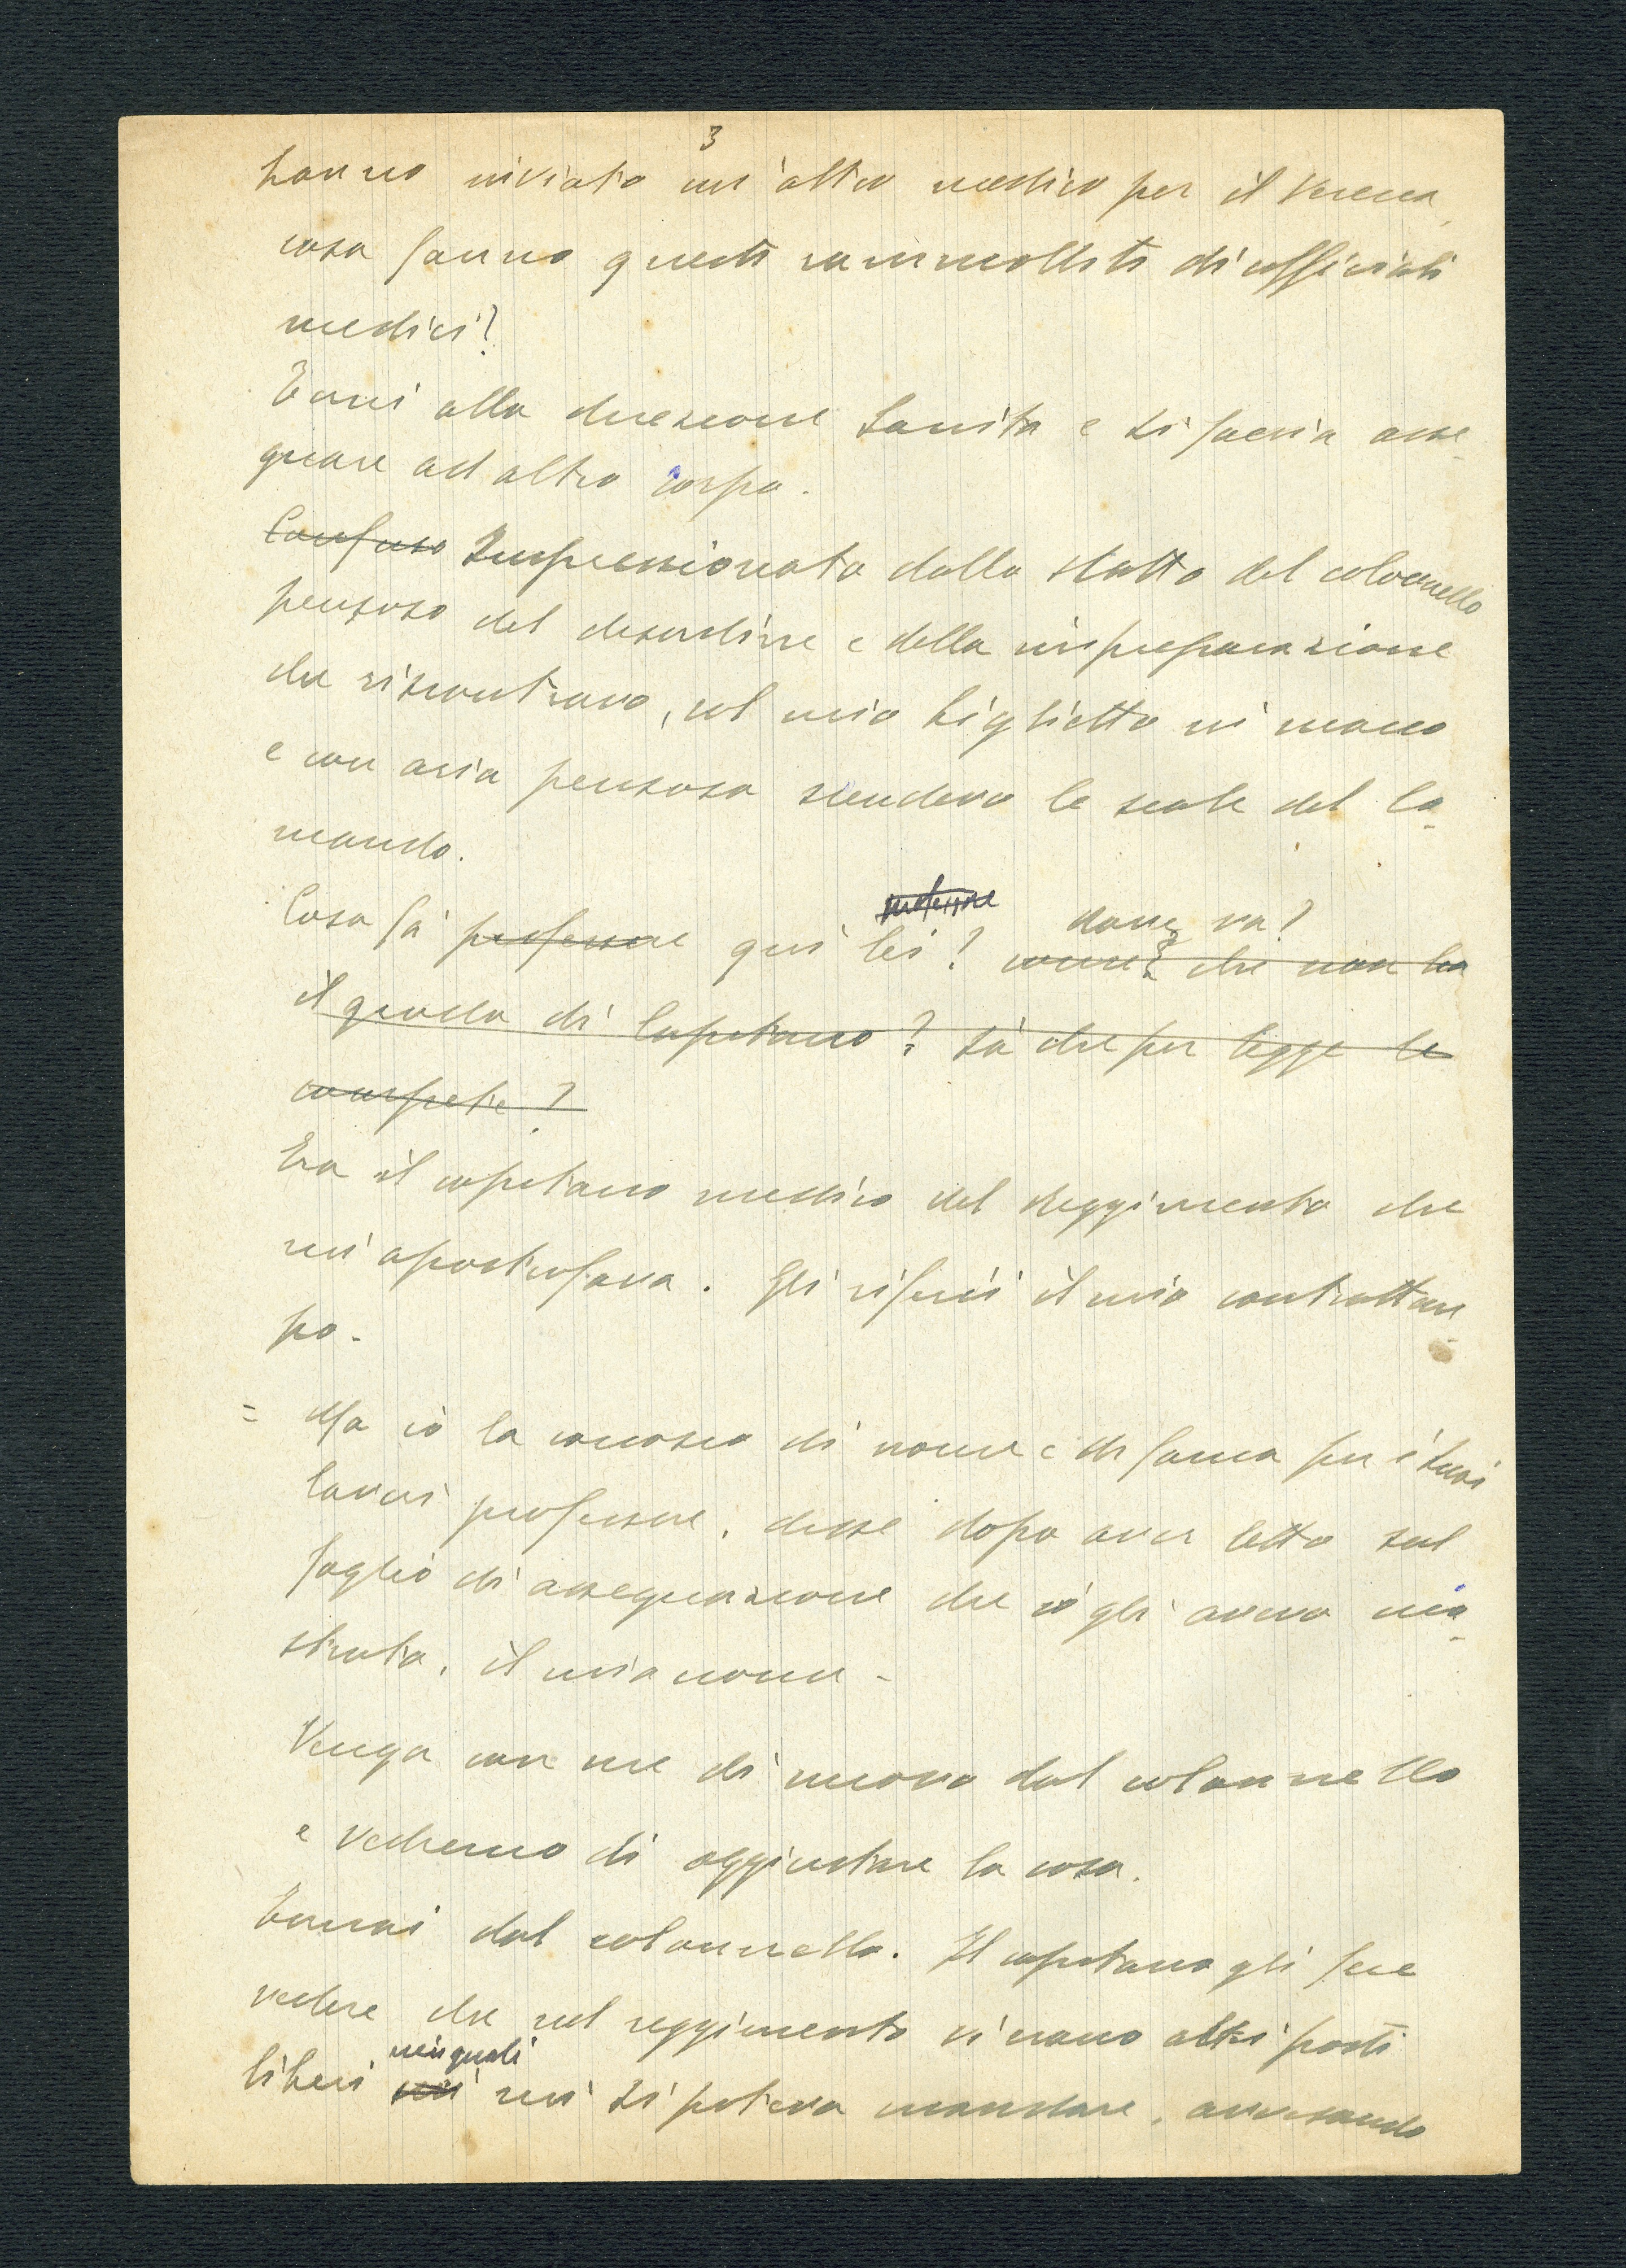 3
hanno inviato un'altro medico per il Verena
cosa fanno questi rammolliti di ufficiali
medici?
Torni alla direzione Sanità e si faccia asse-
gnare ad altro corpo.
Confuso Impressionato dallo scatto del colonnello
pensoso del disordine e della impreparazione
che riscontravo, col mio biglietto in mano
e con aria pensosa scendevo le scale del Co-
mando.
professore dove va?
Cosa fa professore qui lei? come? che non ha
il grado di Capitano? sà che per legge le
compete?
Era il capitano medico del Reggimento che
mi apostrofava. Gli riferii il mio contrattem-
po.
= Ma io la conosco di nome e di fama per i suoi
lavori professore, disse dopo aver letto sul
foglio di assegnazione che io gli avevo mo-
strato, il mio nome -
Venga con me di nuovo dal colonnello
e vedremo di aggiustare la cosa.
Tornai dal colonnello. Il capitano gli fece
vedere che nel reggimento vi erano altri posti
nei quali
liberi mi si poteva mandare, avvisando